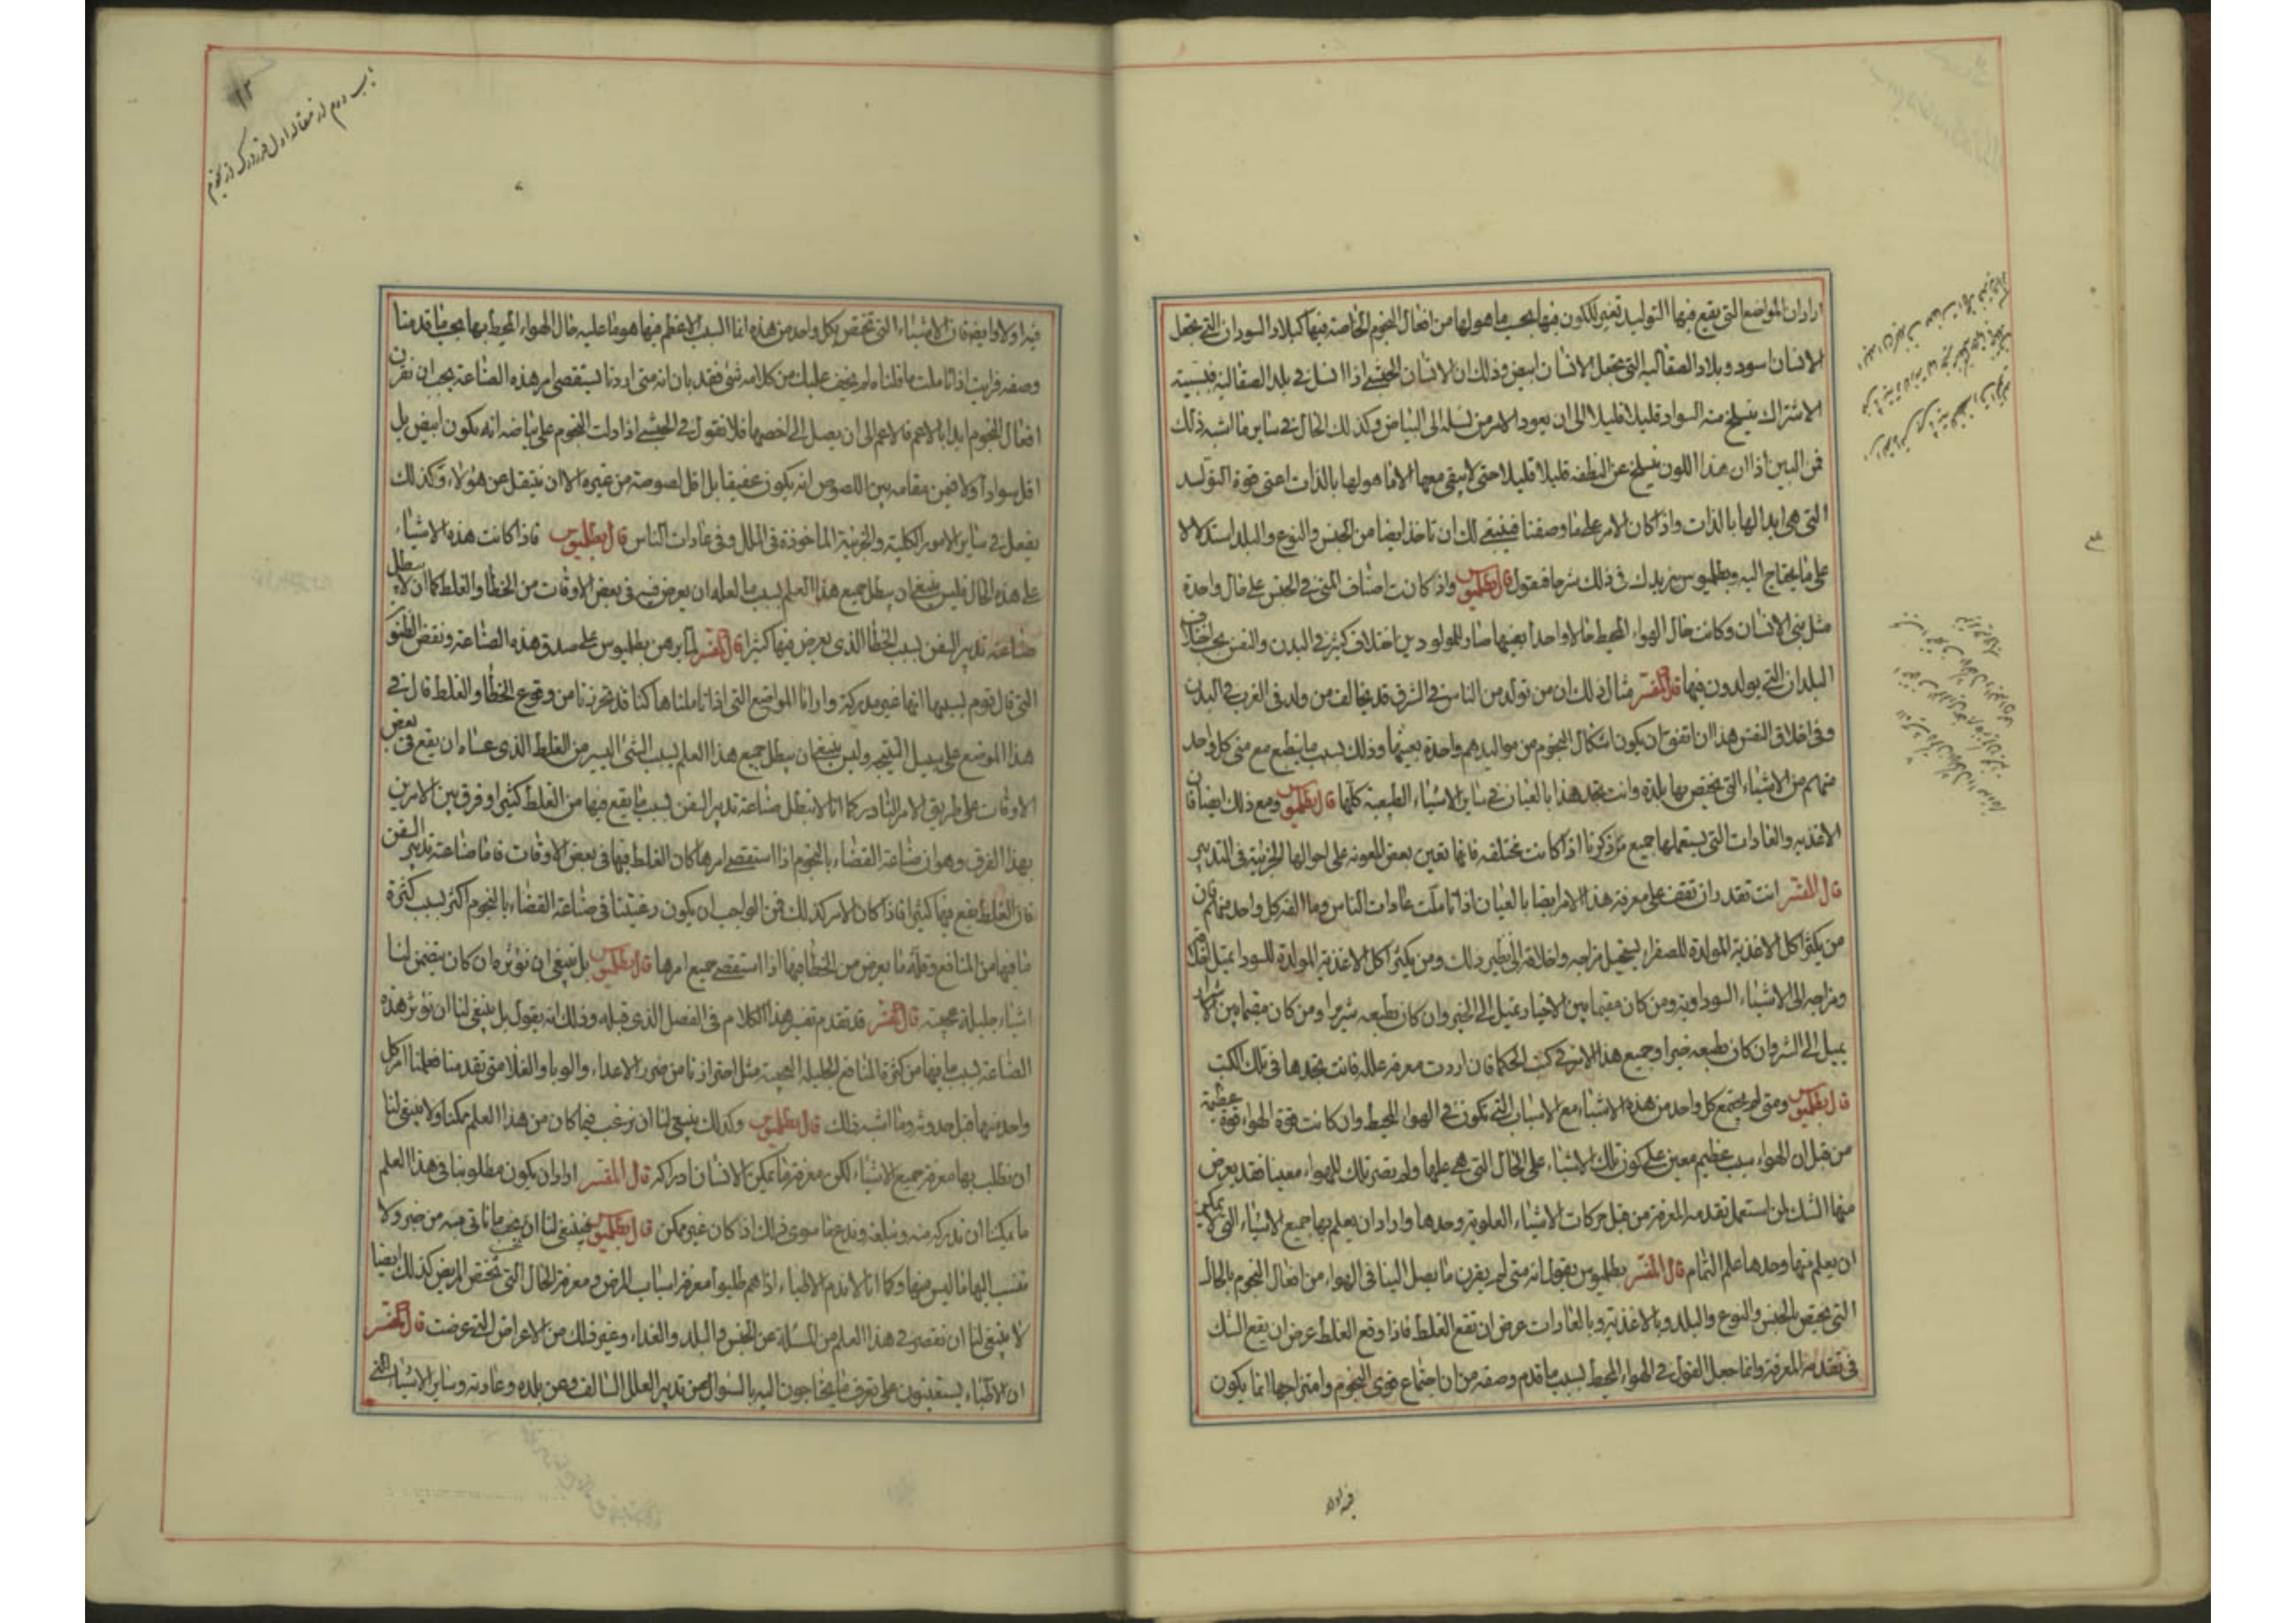 اراد ان المواضع التي يقع فيها التوليد تغير للكون فيها بحسب ما هو لها من افعال النجوم الخاصة فيها كبلاد السودان التي تجعل
الانسان اسود وبلاد الصقالبه التي تجعل الانسان ابيض وذلك ان الانسان الحبشي اذا انسل في بلد الصقالبه فبسبب
الاشتراك ينسلخ منه السواد قليلا قليلا الى ان يعود الامر من نسله الى البياض وكذلك الحال في ساير ما اشبه ذلك
فمن البين اذا ان هذا اللون ينسلخ عن النطفه قليلا قليلا حتى لا يبقى معها الا ما هو لها بالذات اعنى قوة التوليد
التي هي ابدا لها بالذات واذا كان الامر على ما وصفنا فينبغي لك ان تاخذ ايضا من الجنس والنوع والبلد استدلالا
على ما يحتاج اليه وبطلميوس يزيدك في ذلك شرحا فيقول قال بطلميوس واذا كانت اصناف المنى في الجنس على حال واحدة
مثل منى الانسان وكانت حال الهواء المحيط حالا واحدا بعينها صار للمولودين اختلاف كثير في البدن والنفس بحسب اختلاف
البلدان التي يولدون فيها قال المفسر مثال ذلك ان من تولد من الناس في الشرق قد يخالف من ولد في الغرب في البدن
وفي اخلاق النفس هذا ان اتفق ان يكون اشكال النجوم من مواليدهم واحدة بعينها وذلك بسبب ما ينطبع مع منى كل واحد
منهم من الاشياء التي يختص بها بلده وانت تجد هذا بالعيان في ساير الاشياء الطبيعية كلها قال بطلميوس ومع ذلك ايضا فان
الاغذيه والعادات التي يستعملها جميع من ذكرنا اذا كانت مختلفه فانها تعين بعض المعونه على احوالها الجزئية في التدبير
قال المفسر انت تقدر ان تقف على معرفة هذا الامر ايضا بالعيان اذا تاملت عادات الناس وما الفه كل واحد منهم فان
من يكثر اكل الاغذية المولدة للصفراء يستحيل مزاجه واخلاقه الى نظير ذلك ومن يكثر اكل الاغذية المولدة للسودا يميل اخلاقه
ومزاجه الى الاشياء السوداوية ومن كان مقيما بين الاخيار يميل الى الخير وان كان بطبعه شريرا ومن كان مقيما بين الاشرار
يميل الى الشر وان كان طبيعه خيرا وجميع هذا الامر في كتب الحكما فان اردت معرفة علله فانت تجدها في تلك الكتب
قال بطلميوس ومتى لم يجتمع كل واحد من هذه الاشياء مع الاسباب التي تكون في الهواء المحيط وان كانت قوة الهواء قوة عظيمة
من قبل ان الهواء سبب عظيم معين على كون تلك الاشياء على الحال التي هي عليها ولم يصر تلك للهواء معينا فقد يعرض
منها الشك لمن استعمل تقدمة المعرفة من قبل حركات الاشياء العلوية وحدها واراد ان يعلم بها جميع الاشياء التي لا يمكن
ان يعلم منها وحدها علم التمام قال المفسر بطلميوس يقول انه متى لم يقرن ما يصل الينا في الهواء من افعال النجوم بالحال
التي يختص بالجنس والنوع والبلد وبالاغذية وبالعادات عرض ان تقع الغلط فاذا وقع الغلط عرض ان يقع الشك
في تقدمة المعرفة وانما جعل القول في الهواء المحيط بسبب ما قدم وصفه من ان اجتماع قوى النجوم وامتزاجها انما يكون
فيه اولا
١٢
باب دوم از مقاله اول
فيه اولا وايضا فان الاشياء التي تختص بكل واحد من هذه انما السبب الاعظم فيها هو ما عليه حال الهواء المحيط بها بحسب ما قدمنا
وصفه فرايت اذا تاملت ما قلناه لم يخف عليك من كلامه شى فقد بان انه متى اردنا يستقصى امر هذه الصناعة يجب ان نقرن
افعال النجوم ابدا بالاعم فالاعم الى ان يصل الى اخصها فلا نقول في الحبشي اذا دلت النجوم على بياضه انه يكون ابيض بل
اقل سوادا ولا فيمن مقامه بين اللصوص انه يكون عفيفا بل اقل لصوصية من غيره الا ان ينتقل عن هؤلاء وكذلك
يفعل في ساير الامور الكلية والجزئية الماخوذة في الملل وفي عادات الناس قال بطلميوس فاذا كانت هذه الاشياء
على هذه الحال فليس ينبغي ان يبطل جميع هذا العلم بسبب ما لعله ان يعرض فيه في بعض الاوقات من الخطا والغلط كما ان لا يبطل
صناعة تدبير السفن لسبب الخطا الذي يعرض فيها كثيرا قال المفسر لما برهن بطلميوس على صدق هذه الصناعة ونقض الظنون
التي قال قوم بسببها انها غير مدركة وارانا المواضع التي اذا تاملناها كنا قد تحرزنا من وقوع الخطا والغلط قال في
هذا الموضع على سبيل النتيجه وليس ينبغي ان يبطل جميع هذا العلم بسبب الشى اليسير من الغلط الذي عساه ان يقع في بعض
الاوقات على طريق الامر النادر كما انا لا نبطل صناعة تدبير السفن لسبب ما يقع فيها من الغلط كثيرا وفرق بين الامرين
بهذا الفرق وهو ان صناعة القضاء بالنجوم اذا استقصى امرها كان الغلط فيها في بعض الاوقات فاما صناعة تدبير السفن
فان الغلط يقع فيها كثيرا فاذا كان الامر كذلك فمن الواجب ان يكون رغبتنا في صناعة القضاء بالنجوم اكثر بسبب كثرة
ما فيها من المنافع وقلة ما يعرض من الخطا فيها اذا استقصى جميع امرها قال بطلميوس بل ينبغي ان نوثره ان كان يتضمن لنا
اشياء جليلة عجيبة قال المفسر قد تقدم تفسير هذا الكلام في الفصل الذي قبله وذلك انه يقول بل ينبغي لنا ان نوثر هذه
الصناعة بسبب ما فيها من كثرة المنافع الجليلة العجيبة مثل احترازنا من ضرر الاعداء والوبا والغلا متى تقدمنا فعلمنا امر كل
واحد منها قبل حدوثه وما اشبه ذلك قال بطلميوس وكذلك ينبغي لنا ان نرغب فيما كان من هذا العلم ممكنا ولا ينبغي لنا
ان نطلب بها معرفة جميع الاشياء لكن معرفة ما يمكن الانسان ادراكه قال المفسر اراد ان يكون مطلوبنا في هذا العلم
ما يمكننا ان ندركه منه ونبلغه وندع ما سوى ذلك اذ كان غير ممكن قال بطلميوس فينبغي لنا ان نحب ما ناتى منه من خير ولا
ننسب اليها ما ليس فيها وكما انا لا نذم الاطباء اذا هم طلبوا معرفة اسباب المرض ومعرفة الحال التي تختص المريض كذلك ايضا
لا ينبغي لنا ان نقصر في هذا العلم من المسئلة عن الجنس والبلد والغذاء وغير ذلك من الاعراض التي عرضت قال المفسر
ان الاطباء يستعينون على تعرف ما يحتاجون اليه بالسؤال عن تدبير العليل السالف وعن بلده وعادته وساير الاشياء التي